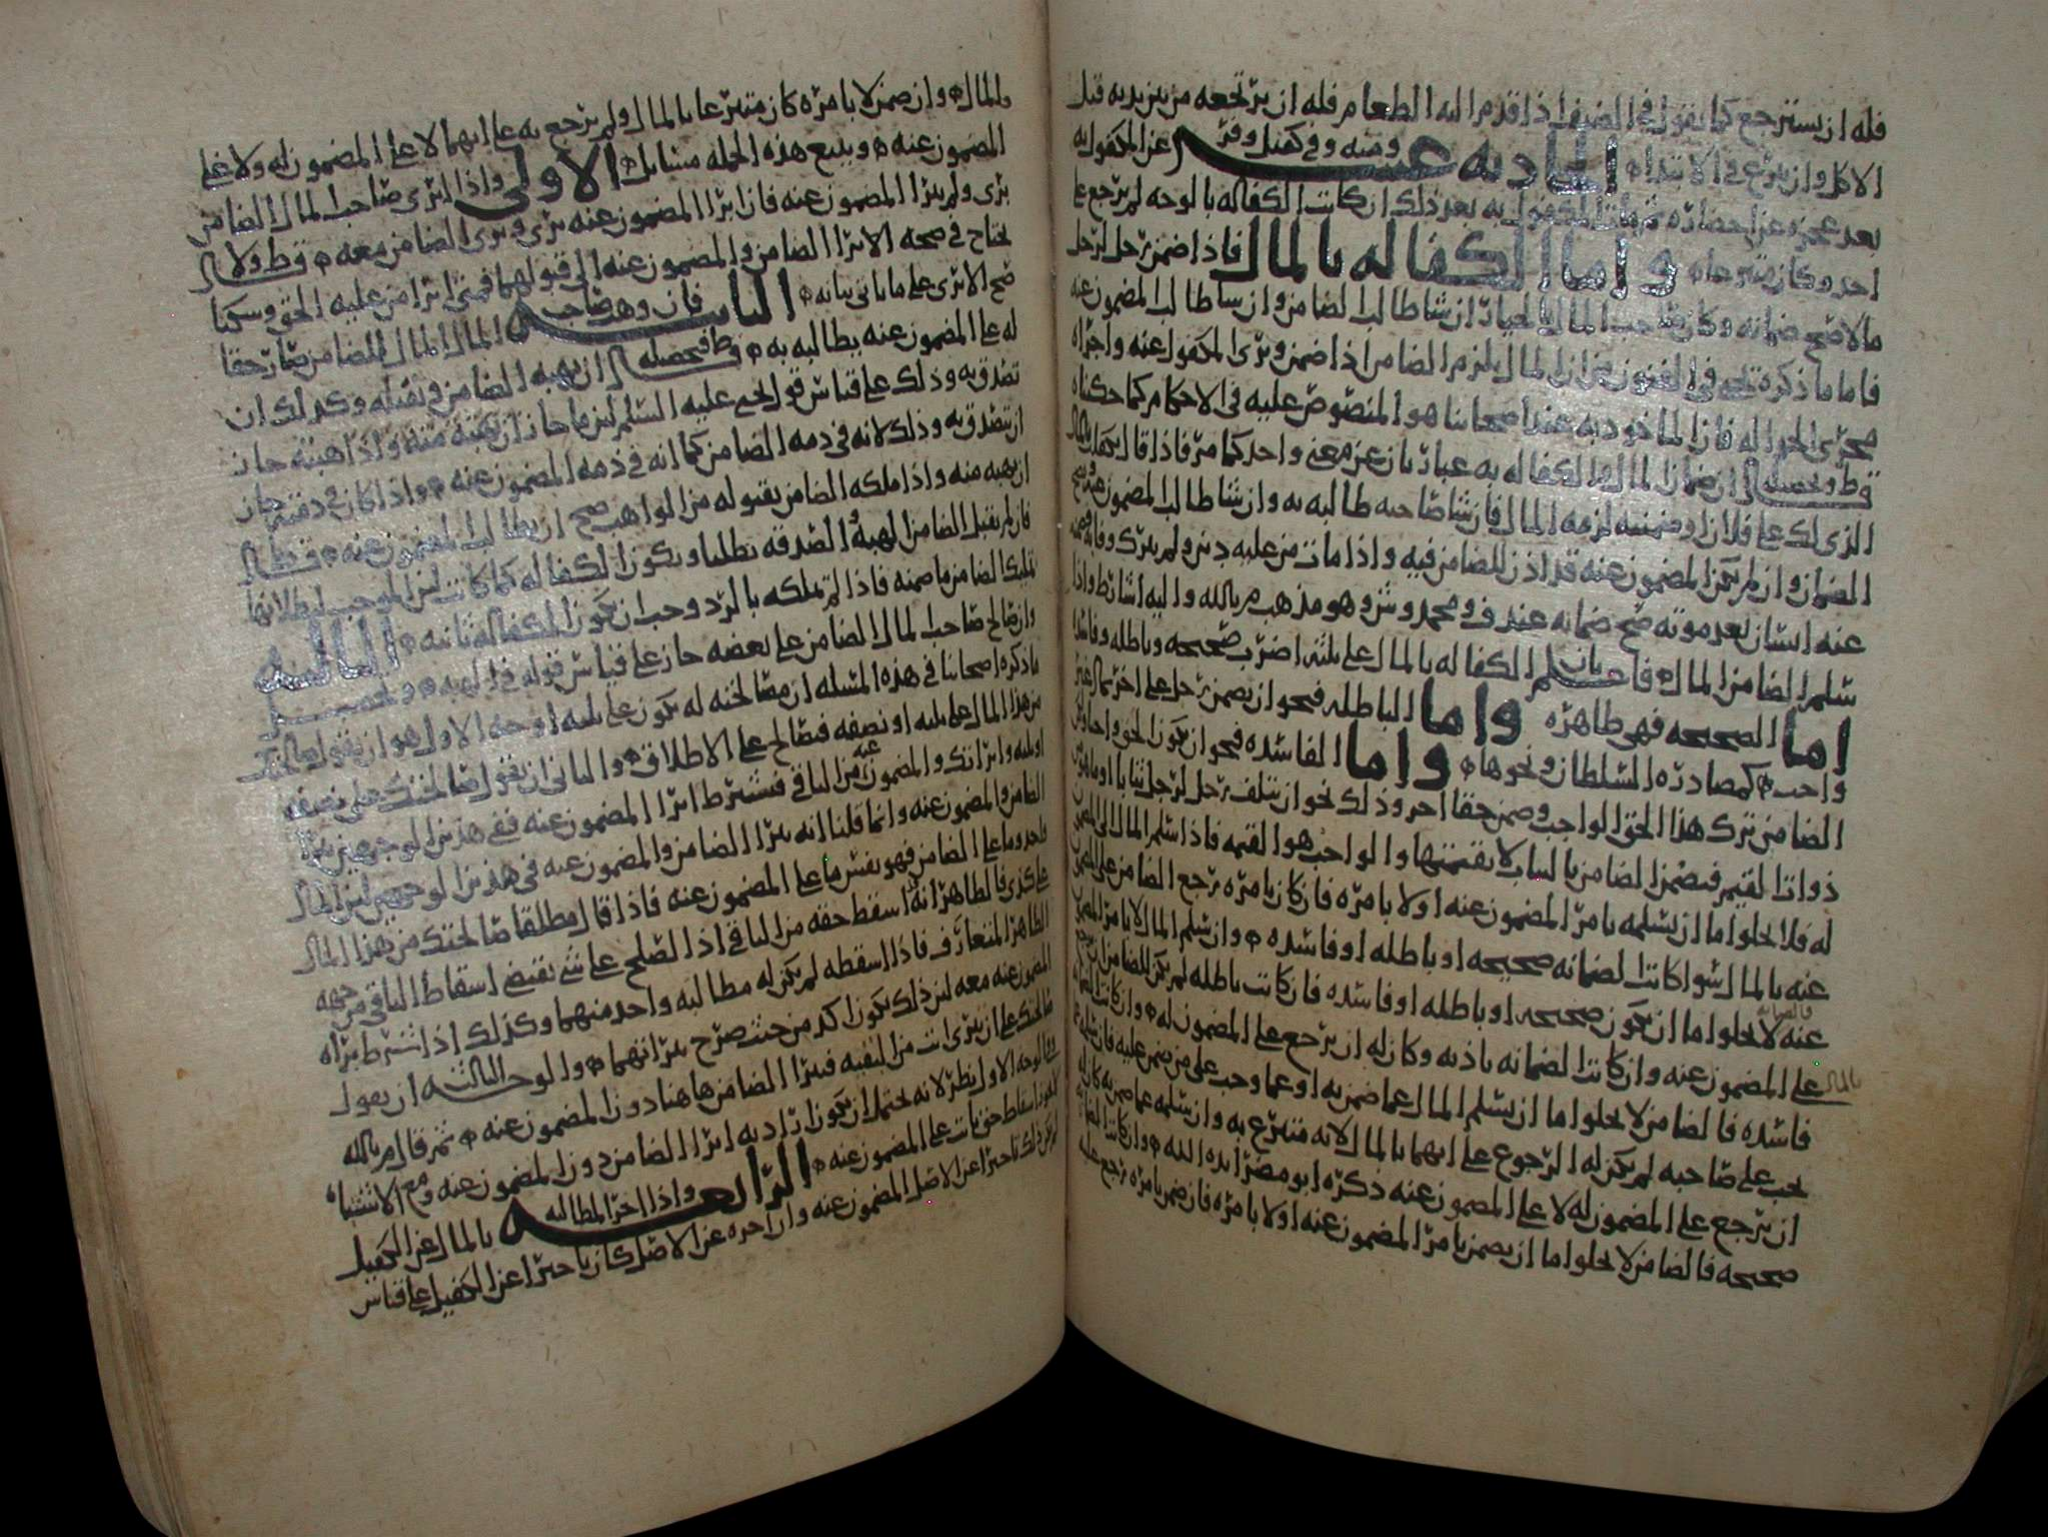 فله ان يسترجع كما يقول في الضيف اذا قدم اليه الطعام فله ان يرتجعه من بين يديه قبل
الاكل وان تبرع في الابتداء الحاديه عشر ومنه وفي كفيل عن المكفول به
بعد عجزه عن احضاره المكفول به بعد ذلك ان كانت الكفاله بالوجه لم يرجع على
احد وكان متبرعا واما الكفاله بالمال فاذا ضمن رجل لرجل
مالا صح ضمانه وكان صاحب المال بالخيار ان شا طالب الضامن وان شا طالب المضمون عنه
فاما ما ذكره يحيى في الفنون من ان المال يلزم الضامن اذا ضمن وبرئ المكفول عنه واجراه
مجرى الحواله فان الماخوذ به عند اصحابنا هو المنصوص عليه في الاحكام كما حكيناه
قط وتحصيله ان ضمان المال والكفاله به عبارتان عن معنى واحد كما مر فاذا قال
الذي لك على فلان او ضمنته لزمه المال فان شا صاحبه طالبه به وان شا طالب المضمون عنه
الضمان وان لم يكن المضمون عنه قد اذن للضامن فيه واذا مات من عليه دين ولم يترك وفا
عنه انسان بعد موته صح ضمانه عند ف ومحمد وش وهو مذهب م بالله واليه اشار ط واذا
سلم الضامن المال فاعلم بان الكفاله بالمال على ثلثه اضرب صحيحه وباطله وفاسده
اما الصحيحه فهي ظاهره واما الباطله فنحو ان يضمن رجل على اخر مالا غير
واجب كمصادره السلطان ونحوها واما الفاسده فنحو ان يكون الحق واجبا
الضامن ترك هذا الحق الواجب وضمن حقا اخر وذلك نحو ان يتلف رجل لرجل ثيابا او ما هو من
ذوات القيم فيضمن الضامن بالثياب لا بقيمتها والواجب هو القيمه فاذا سلم المال الى المضمون
له فلا يخلوا اما ان يسلمه بامر المضمون عنه اولا بامره فان كان بامره رجع الضامن على المضمون
عنه بالمال سوا كانت الضمانه صحيحه او باطله او فاسده وان سلم المال لا بامر المضمون
عنه لا يخلوا اما ان يكون صحيحه او باطله او فاسده فان كانت باطله لم يكن للضامن ان يرجع
على المضمون عنه وان كانت الضمانه باذنه وكان له ان يرجع على المضمون له وان كانت الضمانه بالمال
فاسده فالضامن لا يخلوا اما ان يسلم المال عما ضمن به او عما وجب على من ضمن عليه فان سلم عما
يجب على صاحبه لم يكن له الرجوع على ايهما بالمال لانه متبرع به وان سلمه عما ضمن به كان له
ان يرجع على المضمون له لا على المضمون عنه ذكره ابو مضر ايده الله وان كانت الضمانه
صحيحه فالضامن لا يخلوا اما ان يضمن بامر المضمون عنه اولا بامره فان ضمن بامره رجع عليه
بالمال وان ضمن لا بامره كان متبرعا بالمال ولم يرجع به على ايهما لا على المضمون له ولا على
المضمون عنه ويتبع هذه الجمله مسايل الاولى واذا ابرى صاحب المال الضامن
برى ولم يبرا المضمون عنه فان ابرا المضمون عنه برى وبرى الضامن معه قط ولا
يحتاج في صحه الابرا الضامن والمضمون عنه الى قبولهما فمتى ابرا من عليه الحق وسكتا
صح الابرى على ما ياتي بيانه الثانيه فان وهب صاحب المال المال للضامن صار حقا
له على المضمون عنه يطالبه به قط فتحصيله ان يهبه الضامن ويقبله وكذلك ان
تصدق به وذلك على قياس قول يحيى عليه السلم لان ما جاز ان يهبه منه واذا هبته جاز
ان يتصدق به وذلك لانه في ذمه الضامن كما انه في ذمه المضمون عنه واذا كان في ذمته جاز
ان يهبه منه واذا ملكه الضامن بقبوله من الواهب صح ان يطالب المضمون عنه قط
فان لم يقبل الضامن الهبه او الصدقه بطلتا ويكون الكفاله كما كانت لان الموجب لبطلانها
تمليك الضامن ما ضمنه فاذا لم تملكه بالرد وجب ان يكون الكفاله ثابته الثالثه
وان صالح صاحب المال الضامن على بعضه جاز على قياس قوله في الهبه وتحصيل
ما ذكره اصحابنا في هذه المسله ان مصالحته له يكون على ثلثه اوجه الاول هو ان يقول صالحتك
من هذا المال على ثلثه او نصفه فيصالح على الاطلاق والثاني ان يقول صالحتك على نصفه
او ثلثه وابراتك والمضمون عنه من الباقي فيشترط ابرا المضمون عنه ففي هذين الوجهين يبرا
الضامن والمضمون عنه وانما قلنا انه يبرا الضامن والمضمون عنه في هذين الوجهين لان المال
واحد وما على الضامن فهو نفس ما على المضمون عنه فاذا قال مطلقا صالحتك من هذا المال
على كذى فالظاهر انه اسقط حقه من الباقي اذ الصلح على شي يقتضي اسقاط الباقي من جهه
الظاهر المتعارف فاذا اسقطه لم يكن له مطالبه واحد منهما وكذلك اذا شرط براه
المضمون عنه معه لان ذلك يكون اكد من حيث صرح ببراتهما والوجه الثالث ان يقول
صالحتك على ان تبرى انت من البقيه فيبرا الضامن هاهنا دون المضمون عنه ثم قال م بالله
ففي الوجه الاول نظر لانه يحتمل ان يكون اراد به ابرا الضامن دون المضمون عنه ومع الاشتباه
لا يكون اسقاط حق ثابت على المضمون عنه الرابعه واذا اخر المطالبه بالمال عن الكفيل
لم يكن ذلك تاخيرا عن الاصل المضمون عنه وان اخره عن الاصل كان تاخيرا عن الكفيل على قياس